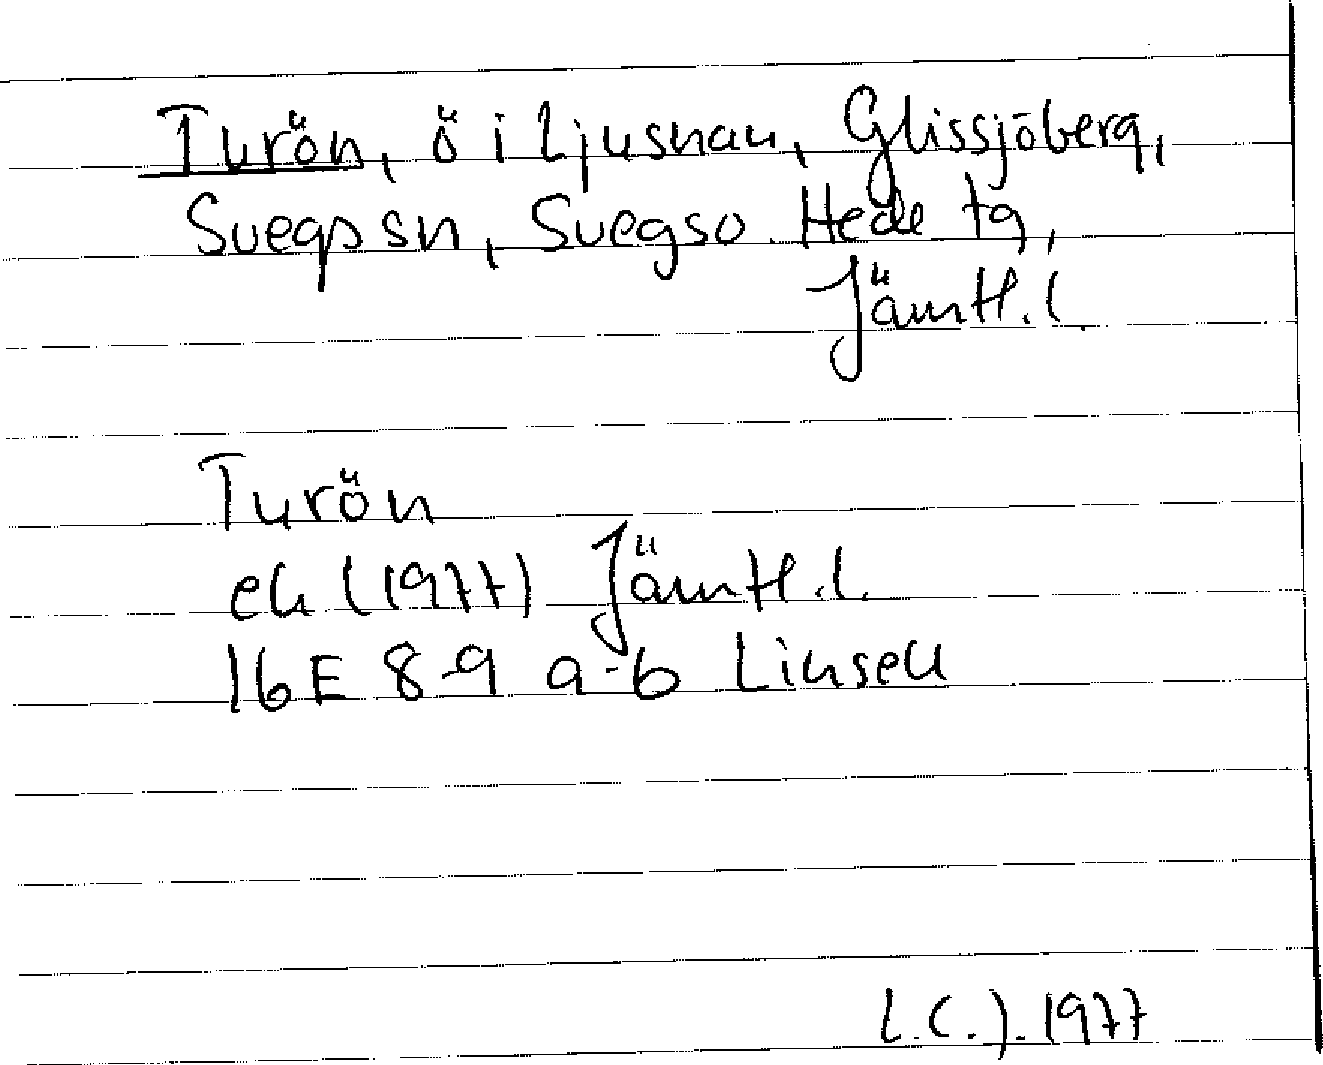 Turön, ö i Ljusnan, Glissjöberg,
Svegs sn, Svegs o. Hede tg,
Jämtl. l.
Turön
ek (1977) Jämtl. l.
16E 8-9 a-b Linsell
L.C.J. 1977